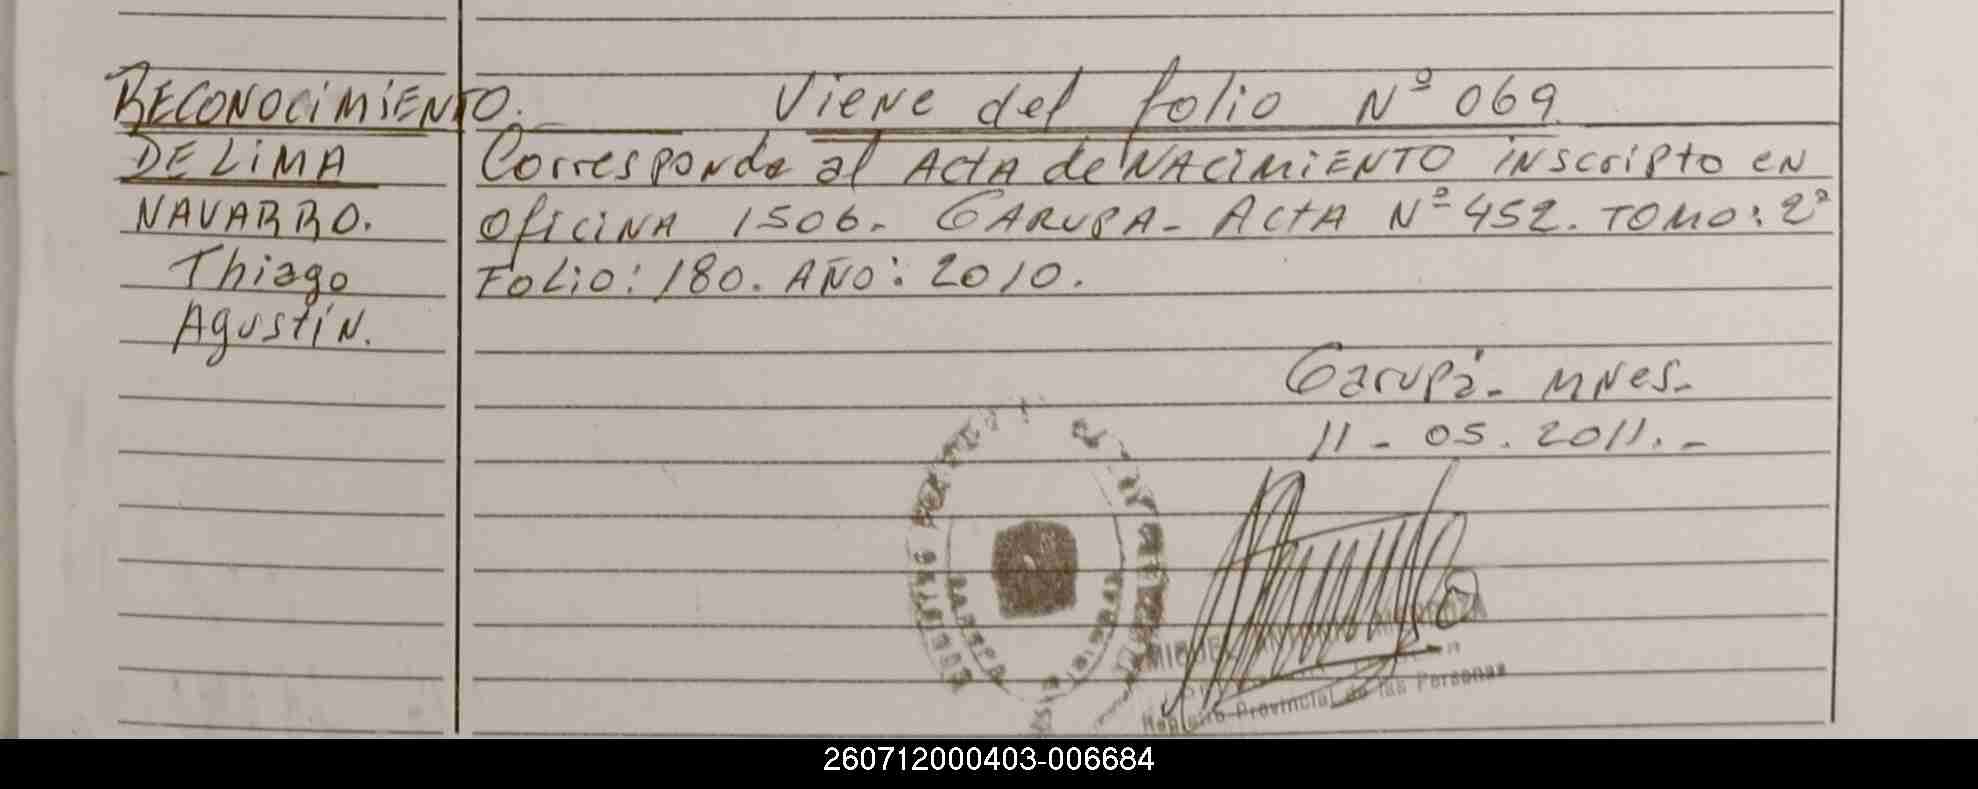 RECONOCIMIENTO. Viene del folio Nº 069
DE LIMA Corresponde al ACTA de NACIMIENTO INScripto EN
NAVARRO. OficiNA 1506- GARUPA- ACTA Nº 452. TOMO: 2º
Thiago FOLIO: 180. AÑO: 2010.
AgustíN.
Garupá- MNes-
11-05.2011.-
Registro Provincial de las Personas
260712000403-006684